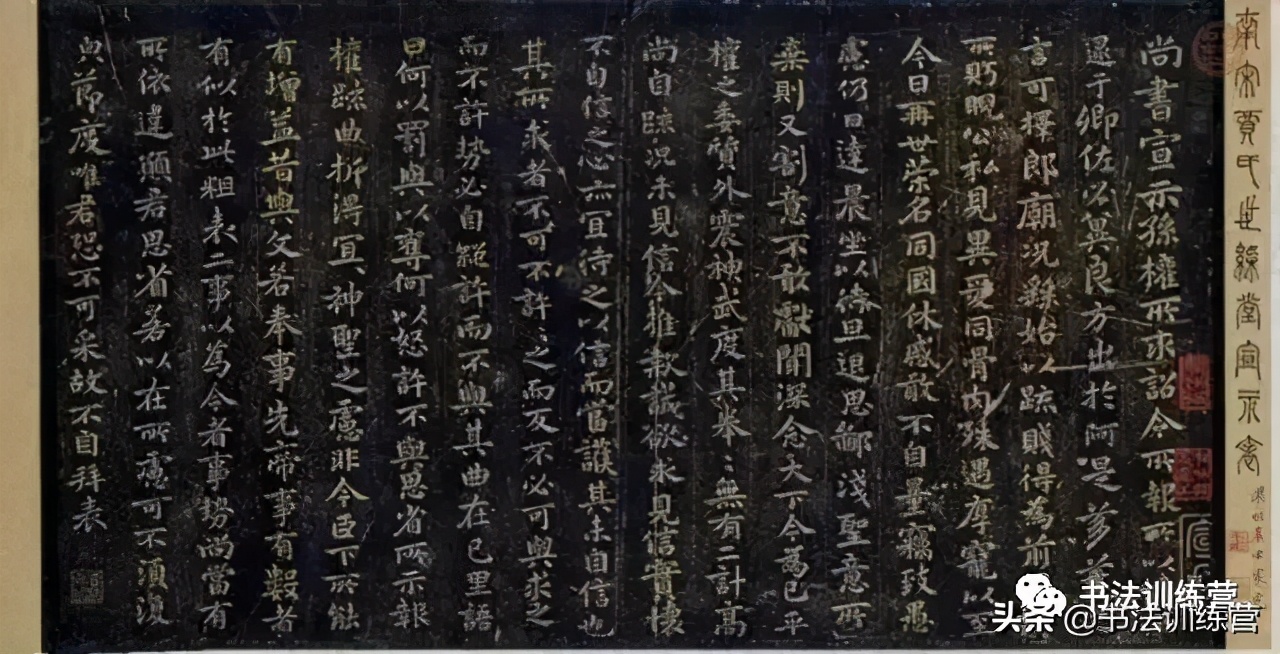 南宋賈氏世綵堂宣示表
尚書宣示孫權所求詔令所報所以
逮于卿佐必冀良方出於阿是芻蕘
言可擇郎廟況繇始以疏賤得為前
所眄睨公私見異愛同骨肉殊遇厚寵以至
今日再世榮名同國休慼敢不自量竊致愚
慮仍日達晨坐以待旦退思鄙淺聖意所
棄則又割意不敢獻聞深念天下今為已平
權之委質外震神武度其拳〻無有二計高
尚自疏況未見信今推款誠欲求見信實懷
不自信之心亦宜待之以信而當護其未自信也
其所求者不可不許〻之而反不必可與求之
而不許勢必自絕許而不與其曲在己里語
曰何以罰與以奪何以怒許不與思省所示報
權疏曲折得宜〻神聖之慮非今臣下所能
有增益昔與文若奉事先帝事有數者
有似於此粗表二事以為今者事勢尚當有
所依違願君思省若以在所慮可不須復
與節度唯君恐不可采故不自拜表
书法训练营
头条@书法训练营